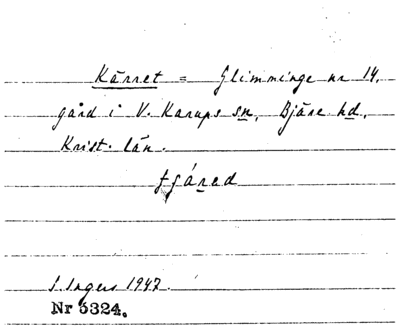 Kärret = Glimminge nr 14.
gård i V. Karups sn, Bjäre hd,
Krist. län.
I. Ingers 1947.
Nr 5324.